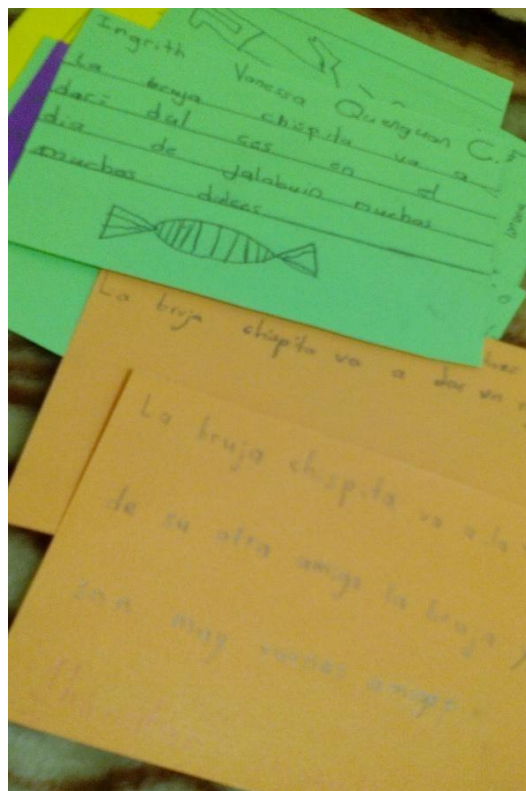 Ingrith Vanessa Quenguan C.
La bruja chispita va a
dari dul ces en el
dia de jalabuin muchos
muchos dulces
La bruja chispita va a dar un
La bruja chispita va a la
de su otra amiga la bruja
son muy